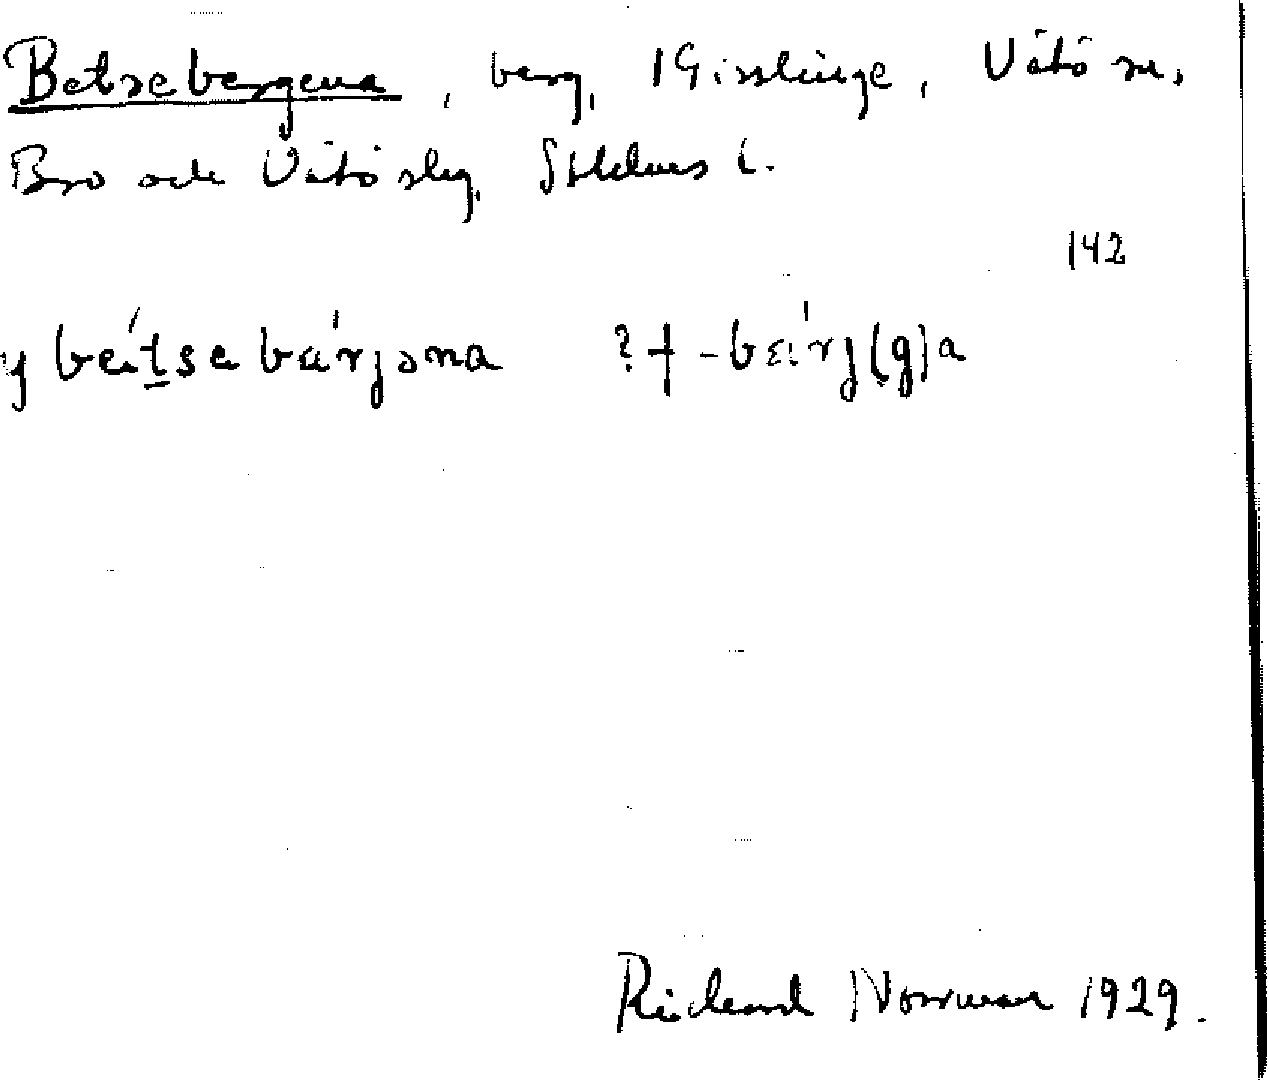 Betsebergena, berg, 1 Gisslinge, Vätö sn,
Bro och Vätö skg, Sthlms l.
142
y bet̠sabärjəna ?+ -bärj(g)a
Richard Norrman 1929.